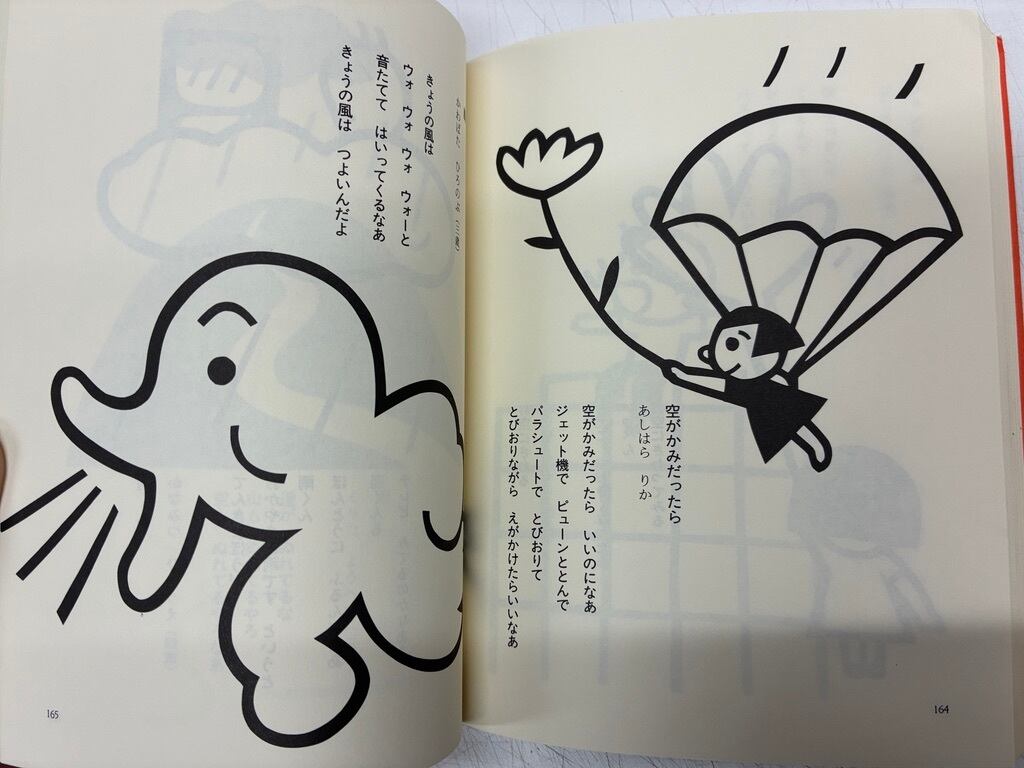 空がかみだったら
あしはら りか
空がかみだったら いいのになあ
ジェット機で ピューンととんで
パラシュートで とびおりて
とびおりながら えがかけたらいいなあ
164
かわばた ひろのぶ(三歳)
きょうの風は
ウォ ウォ ウォ ウォーと
音たてて はいってくるなあ
きょうの風は つよいんだよ
165